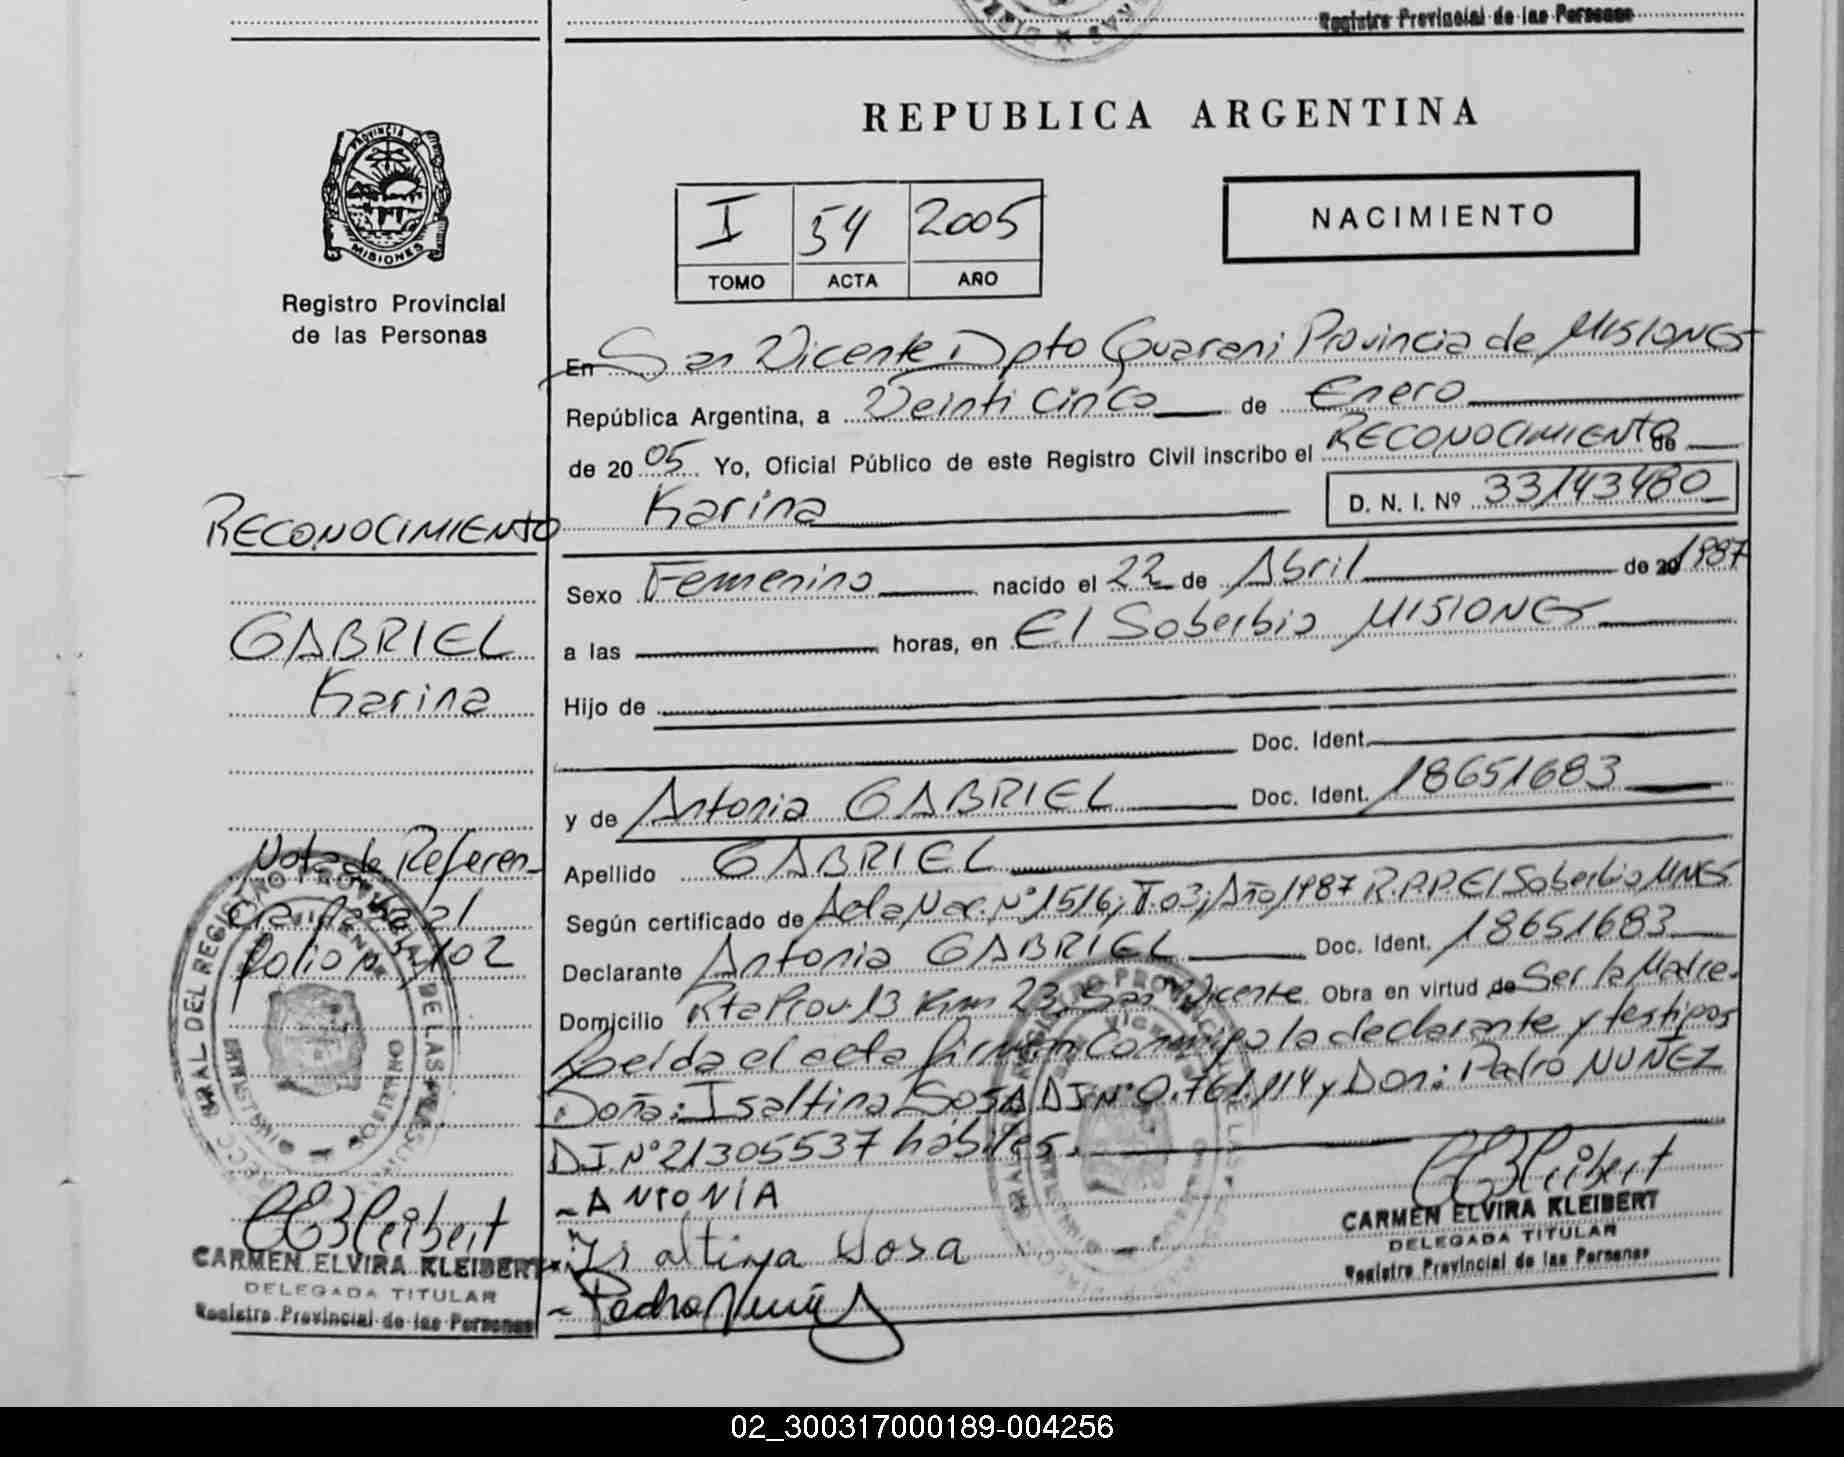 Registro Provincial de las Personas
REPUBLICA ARGENTINA
PROVINCIA
MISIONES
Registro Provincial
de las Personas
I 54 2005
TOMO ACTA AÑO
NACIMIENTO
En San Vicente Dpto Guarani Provincia de MISIONES
República Argentina, a Veinti cinco de Enero
de 20 05 Yo, Oficial Público de este Registro Civil inscribo el RECONOCIMIENTO de
Karina D. N. I. Nº 33143480
RECONOCIMIENTO
GABRIEL
Karina
Sexo Femenino nacido el 22 de Abril de 20 1987
a las horas, en El Soberbio MISIONES
Hijo de
Doc. Ident.
y de Antonia GABRIEL Doc. Ident. 18651683
Apellido GABRIEL
Según certificado de Acta Nac. Nº 1516, T.03, Año 1987 R.P.P. El Soberbio MNES
Declarante Antonia GABRIEL Doc. Ident. 18651683
Domicilio Rta Prov. 13 Km 23 San Vicente Obra en virtud de Ser la Madre.
Leída el acta firman conmigo la declarante y testigos
Doña: Isaltina SOSA DI Nº 0.761.114 y Don: Pedro NUÑEZ
DI Nº 21305537 hábiles.
Nota de Referen-
cia al
Folio nº 102
ANTONIA
Isaltina Sosa
Pedro Nuñez
CEKleibert
CARMEN ELVIRA KLEIBERT
DELEGADA TITULAR
Registro Provincial de las Personas
CEKleibert
CARMEN ELVIRA KLEIBERT
DELEGADA TITULAR
Registro Provincial de las Personas
02_300317000189-004256